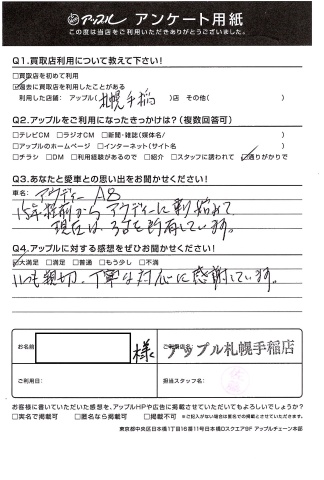 アップル アンケート用紙
この度は当店をご利用いただきありがとうございました。
Q1.買取店利用について教えて下さい!
□買取店を初めて利用
☑過去に買取店を利用したことがある
利用した店舗: アップル( 札幌手稲 )店 その他( )
Q2.アップルをご利用になったきっかけは?(複数回答可)
□テレビCM □ラジオCM □新聞・雑誌(媒体名/ )
□アップルのホームページ □インターネット(サイト名 )
□チラシ □DM □利用経験があるので □紹介 □スタッフに誘われて ☑通りがかりで
Q3.あなたと愛車との思い出をお聞かせください!
車名: アウディー A8
15年程前から アウディーに乗り始めて
現在は、3台を所有しています。
Q4.アップルに対する感想をぜひお聞かせください!
☑大満足 □満足 □普通 □もう少し □不満
いつも親切、丁寧な対応に感謝しています。
お名前 様
ご利用店名: アップル札幌手稲店
ご利用日:
担当スタッフ名:
お客様に書いていただいた感想を、アップルHPや広告に掲載させていただいてもよろしいでしょうか?
□実名で掲載可 □匿名なら掲載可 □掲載不可 ※ご記入がない場合は匿名での掲載とさせていただきます。
東京都中央区日本橋1丁目16番11号日本橋Dスクエア9F アップルチェーン本部